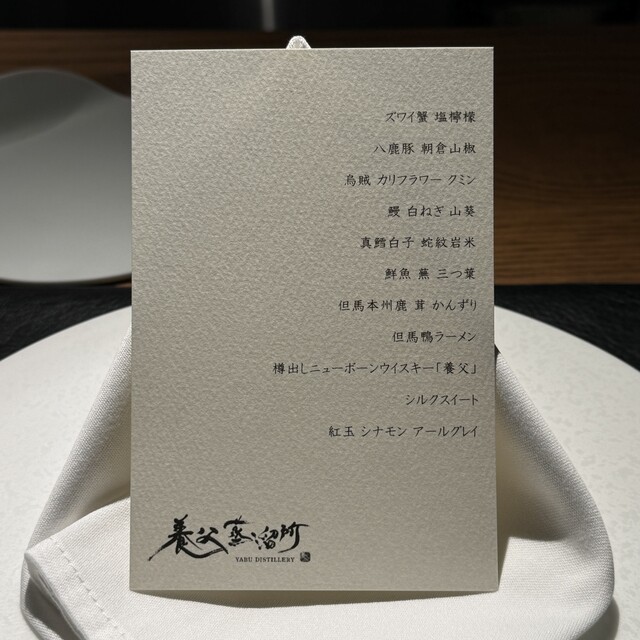 ズワイ蟹 塩檸檬
八鹿豚 朝倉山椒
烏賊 カリフラワー クミン
鰻 白ねぎ 山葵
真鱈白子 蛇紋岩米
鮮魚 蕪 三つ葉
但馬本州鹿 茸 かんずり
但馬鴨ラーメン
樽出しニューボーンウイスキー「養父」
シルクスイート
紅玉 シナモン アールグレイ
養父蒸溜所
YABU DISTILLERY